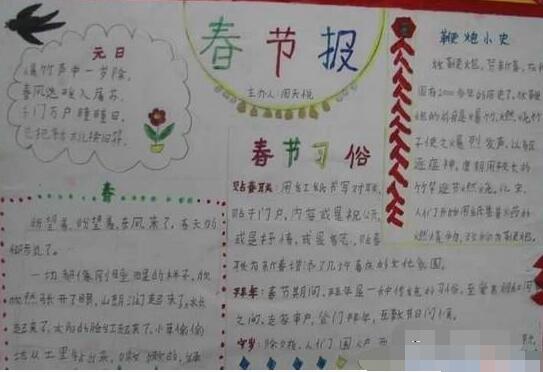 春节报
主办人:周天悦
元日
爆竹声中一岁除,
春风送暖入屠苏。
千门万户曈曈日,
总把新桃换旧符。
春
盼望着,盼望着,东风来了,春天的
脚步近了。
一切都像刚睡醒的样子,欣
欣然张开了眼。山朗润起来了,水长
起来了,太阳的脸红起来了。小草偷偷
地从土里钻出来,嫩嫩的,绿
春节习俗
贴春联:用红纸书写对联,
贴于门户,内容或是祝
或是抒情,或是
为新春增添了几许喜庆的文化氛围。
拜年:春节期间,拜年是一种传统的习俗,至爱亲朋和
之间,走家串户,登门拜年,互致节日问候。
守岁:除夕夜,人们围
鞭炮小史
放鞭炮,贺新春,在
国有2000余年的历史了。鞭
炮的前身是爆竹,燃烧竹
子使之爆烈发声,以驱
逐瘟神。唐朝用较长的
竹竿逐节燃烧。北宋,
人们开始用纸裹着火药的
燃烧物,改称为鞭炮。